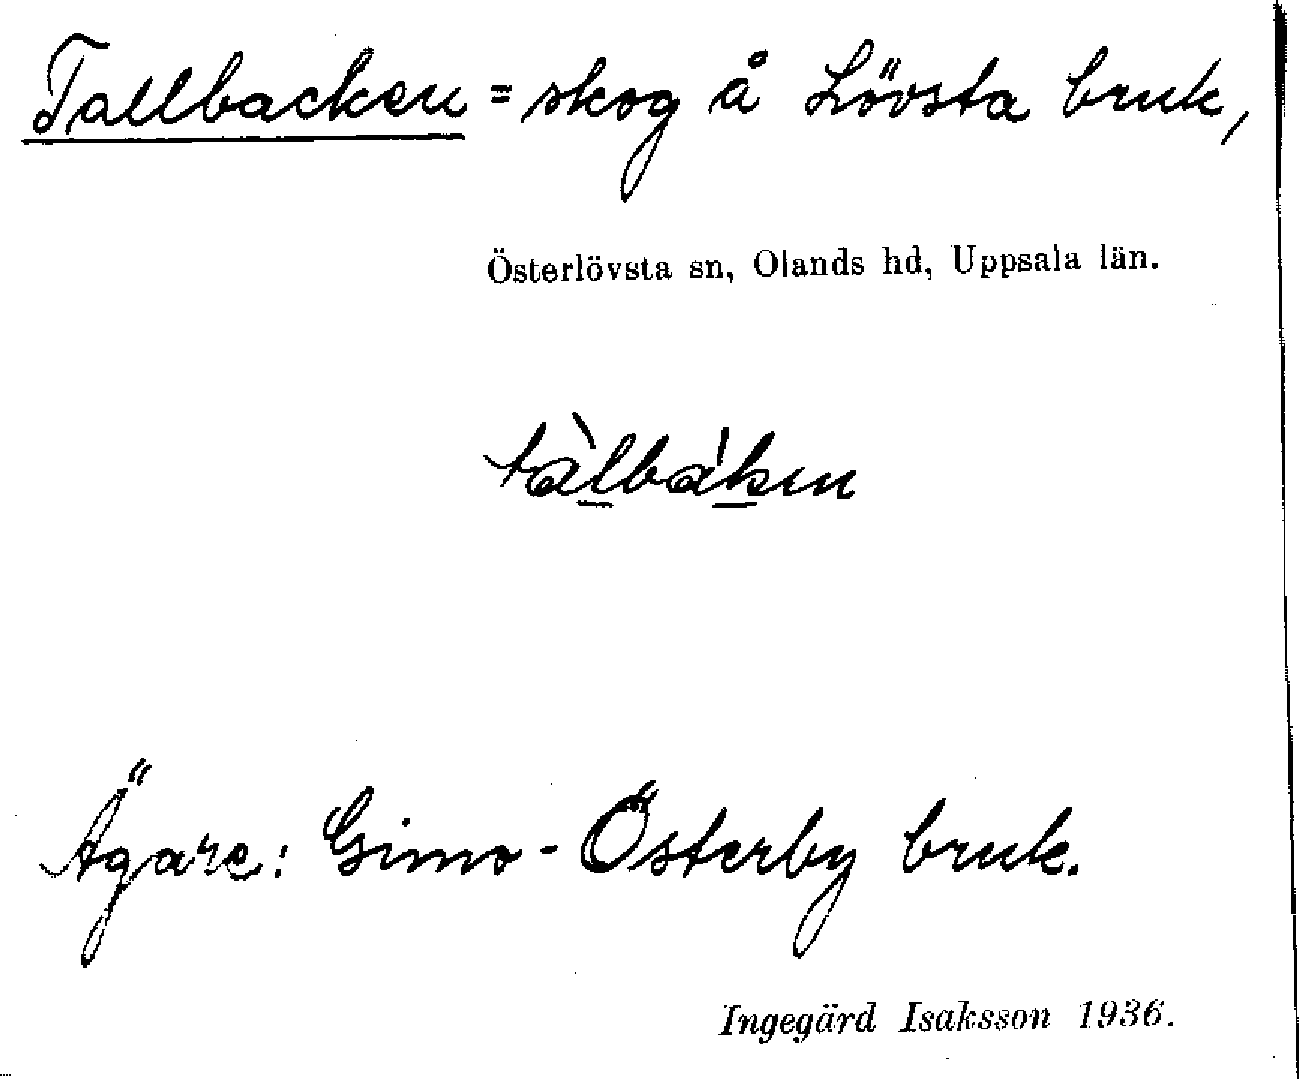 Tallbacken = skog å Lövsta bruk,
Österlövsta sn, Olands hd, Uppsala län.
tàl̲bá̲ken
Ägare: Gimo-Österby bruk.
Ingegärd Isaksson 1936.